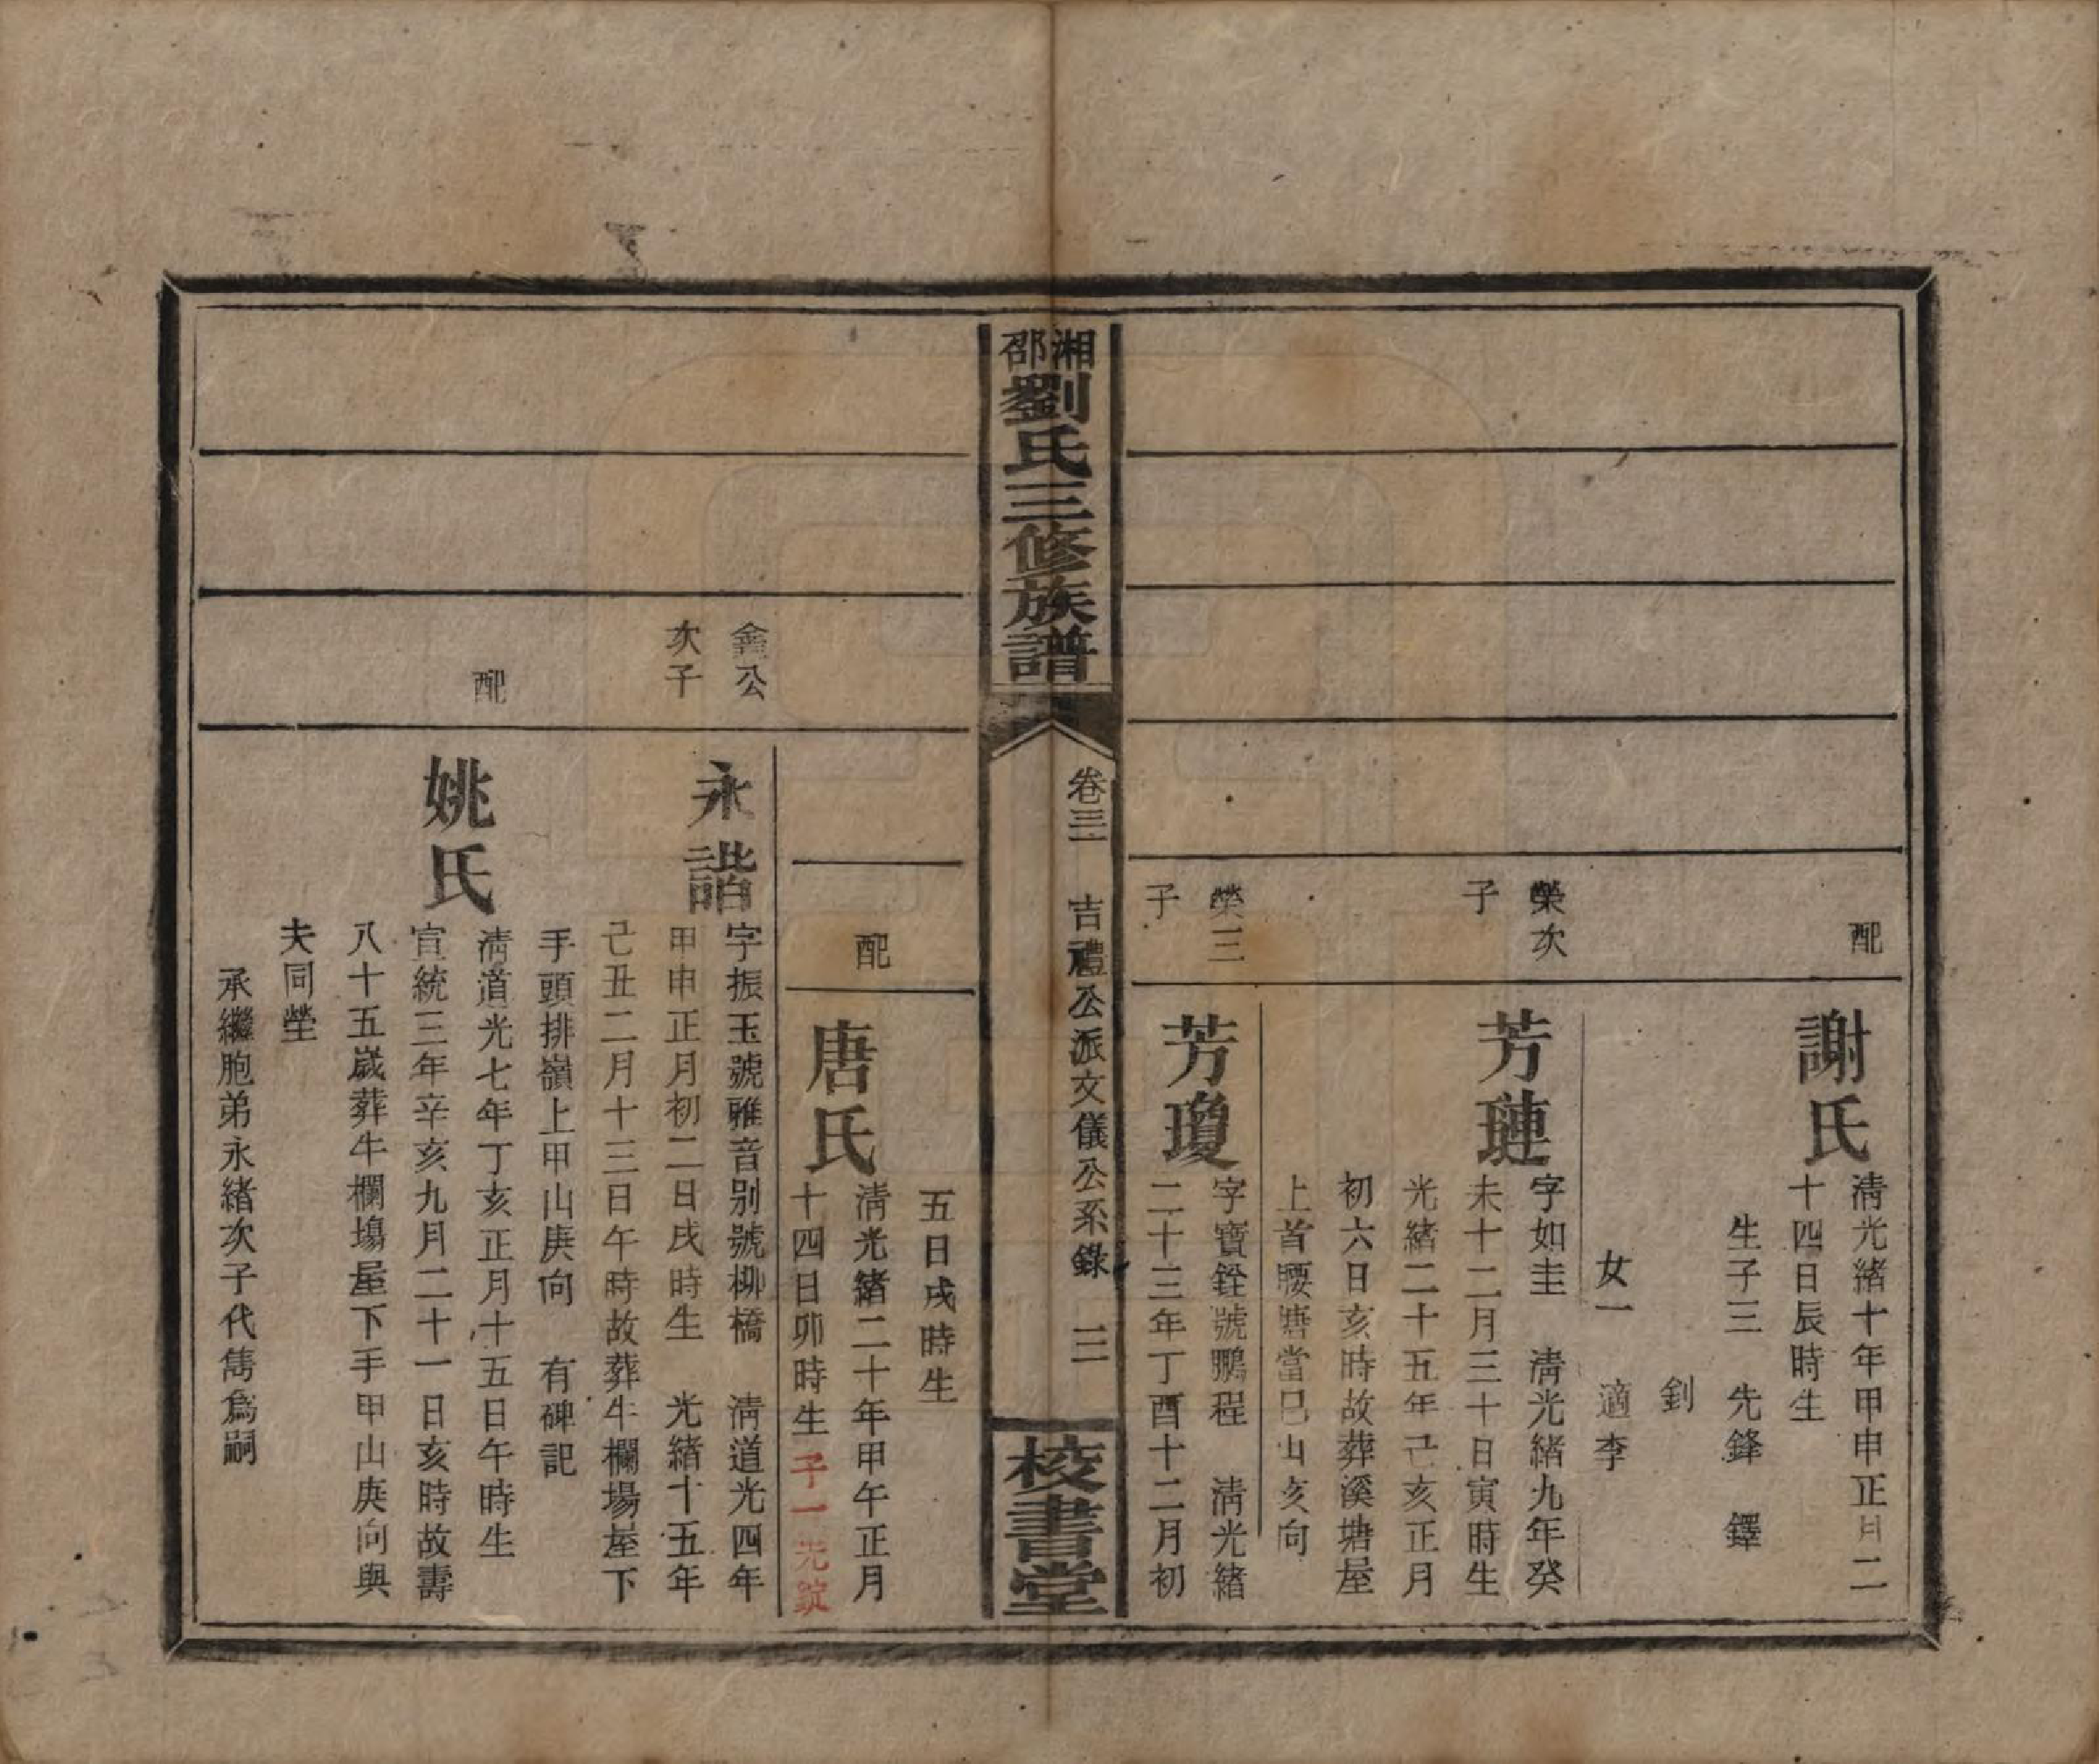 配
謝氏
清光緒十年甲申正月二
十四日辰時生
生子三　先鋒　鐸
釗
女一　適李
榮次
子
芳璉
字如圭　清光緒九年癸
未十二月三十日寅時生
光緒二十五年己亥正月
初六日亥時故葬溪塘屋
上首腰塘當巳山亥向
榮三
子
芳瓊
字寶銓號鵬程　清光緒
二十三年丁酉十二月初
湘邵劉氏三修族譜
卷三　吉禮公派文儀公系錄　三
校書堂
五日戌時生
配
唐氏
清光緒二十年甲午正月
十四日卯時生子一先錠
公
次子
永諧
字振玉號雅音別號柳橋　清道光四年
甲申正月初二日戌時生　光緒十五年
己丑二月十三日午時故葬牛欄塲屋下
手頭排嶺上甲山庚向　有碑記
配
姚氏
清道光七年丁亥正月十五日午時生
宣統三年辛亥九月二十一日亥時故壽
八十五歲葬牛欄塲屋下手甲山庚向與
夫同塋
承繼胞弟永緒次子代雋為嗣